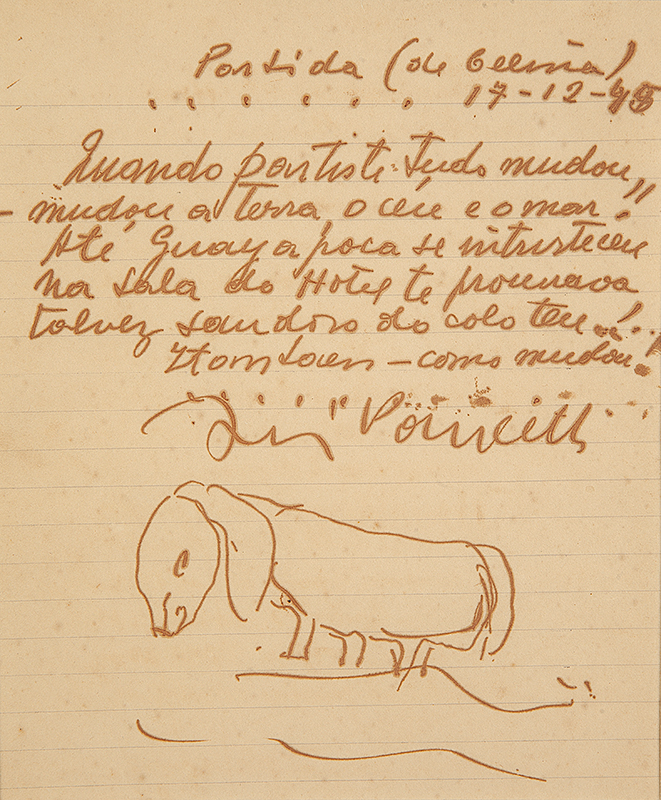 Partida (de Celina)
17-12-45
Quando partiste tudo mudou,
– mudou a terra, o céu e o mar.
Até Guayapoca se intristeceu
na sala do Hotel te procurava
talvez saudoso do colo teu..!..
– como mudou.